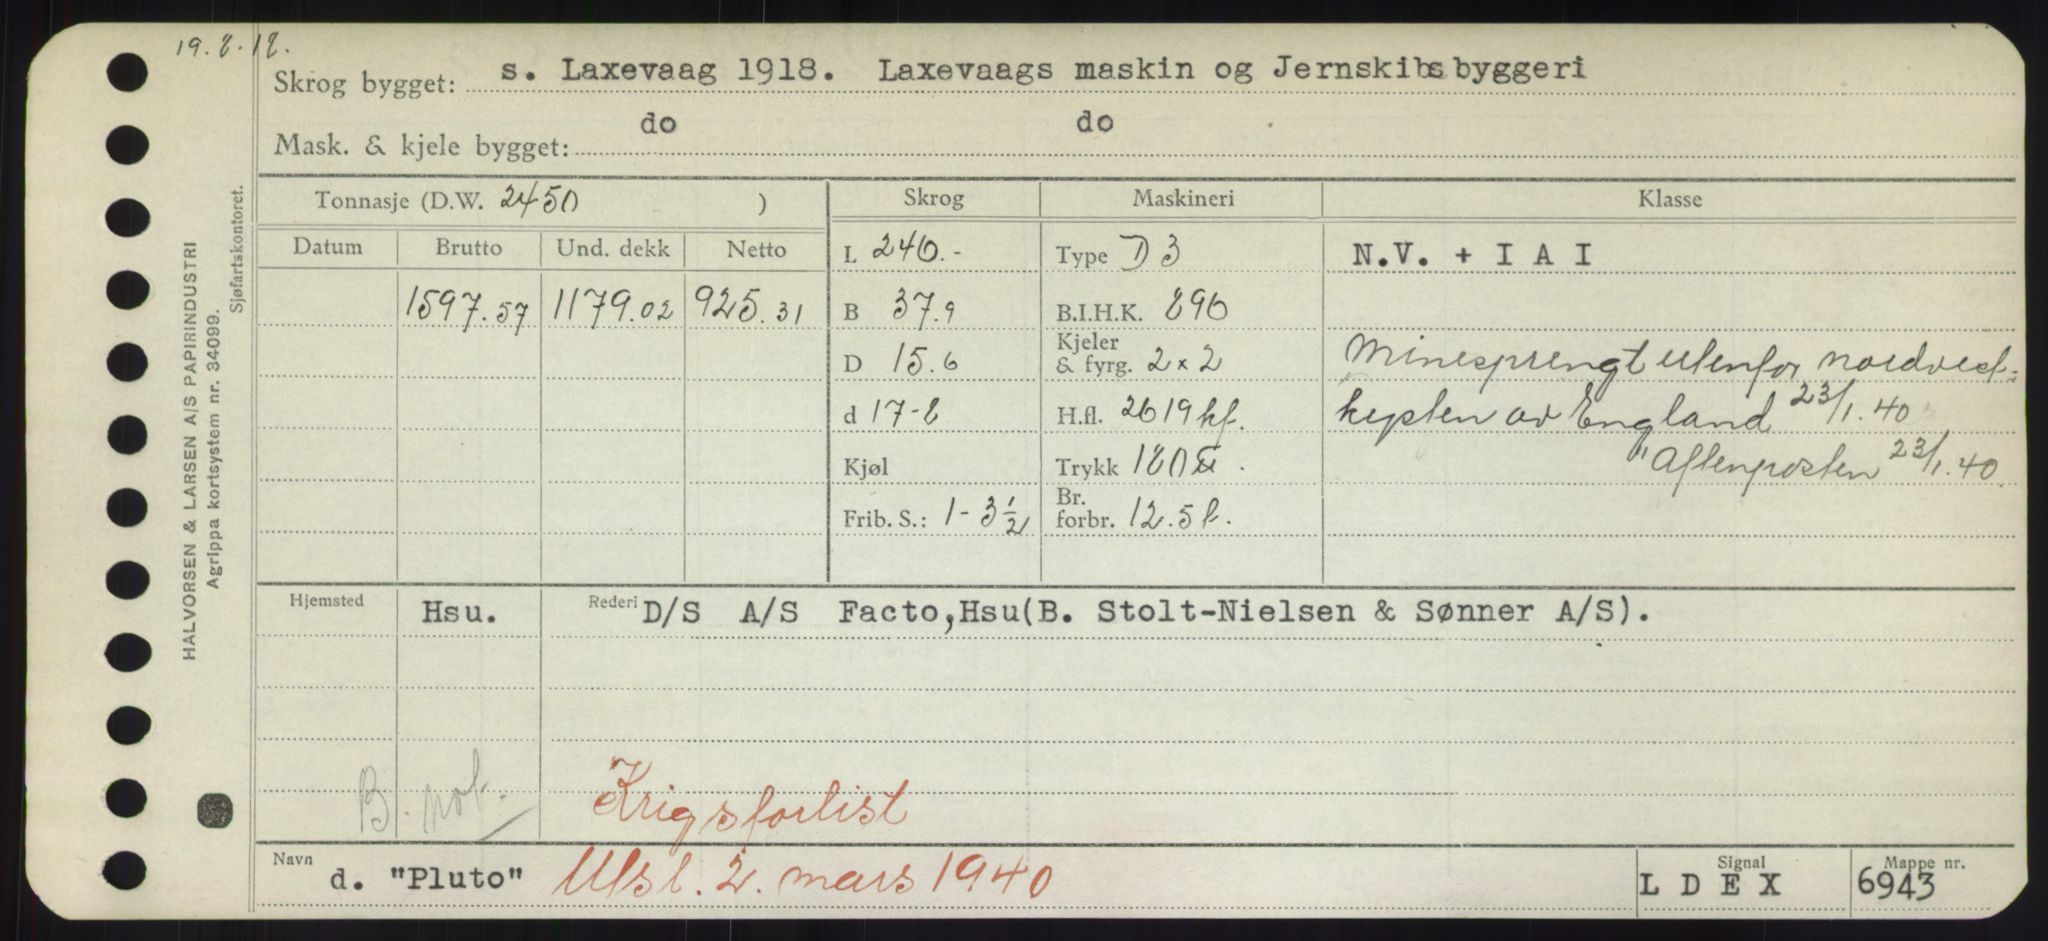 19.8.18.
Skrog bygget: s. Laxevaag 1918. Laxevaags maskin og Jernskibsbyggeri
Mask. & kjele bygget: do do
Tonnasje (D.W. 2450 ) Skrog Maskineri Klasse
Datum Brutto Und. dekk Netto L 240.- Type D3 N.V. + I A I
1597.57 1179.02 925.31 B 37.9 B.I.H.K. 890
D 15.6 Kjeler & fyrg. 2x2 Minesprengt utenfor nordvest-
d 17-8 H.fl. 2619 kf. kysten av England 23/1.40
Kjøl Trykk 180 ℔. "Aftenposten 23/1.40.
Frib. S.: 1-3 1/2 Br. forbr. 12.5 l.
Hjemsted Hsu. Rederi D/S A/S Facto,Hsu(B. Stolt-Nielsen & Sønner A/S).
B. not. Krigsforlist
Navn d. "Pluto" Utsl. 2. mars 1940 Signal L D E X Mappe nr. 6943
HALVORSEN & LARSEN A/S PAPIRINDUSTRI
Agrippa kortsystem nr. 34099.
Sjøfartskontoret.